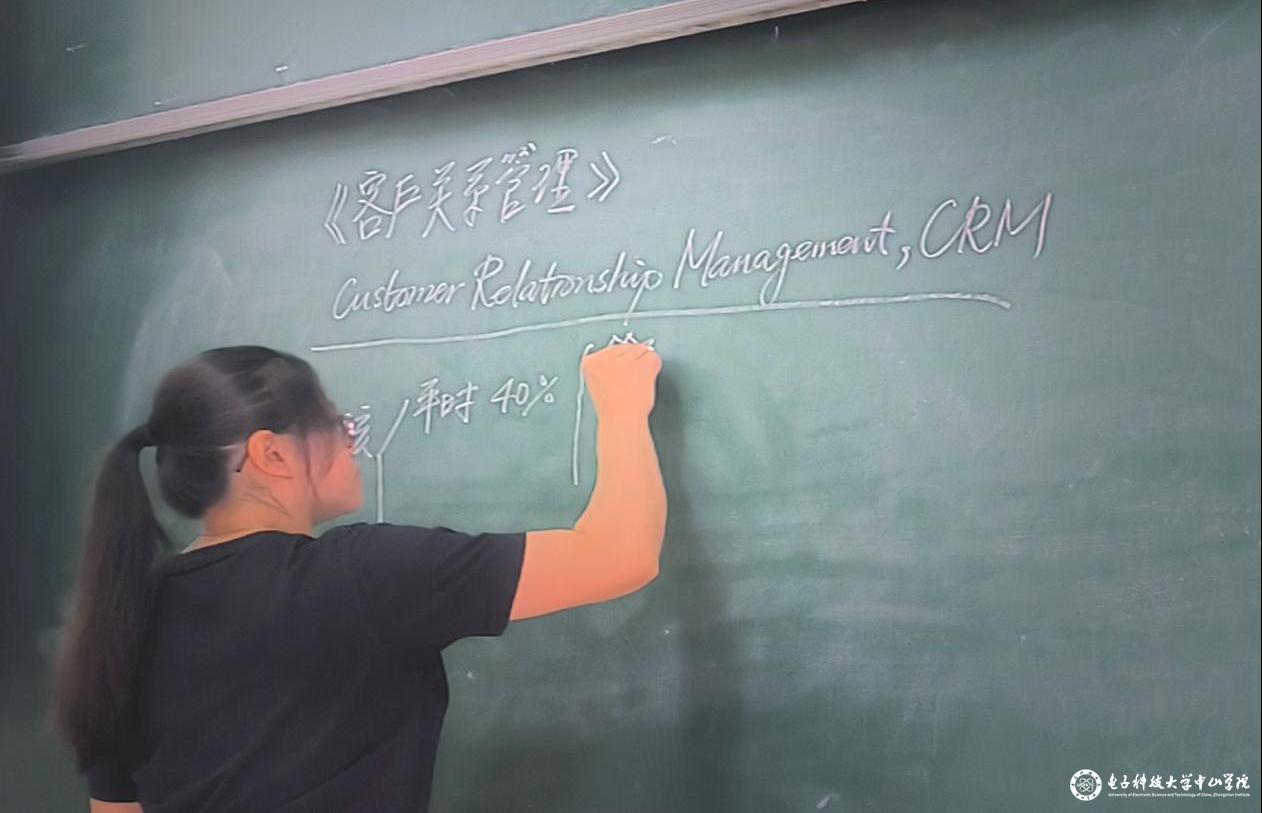 《客户关系管理》
Customer Relationship Management, CRM
平时 40%
电子科技大学中山学院
University of Electronic Science and Technology of China, Zhongshan Institute